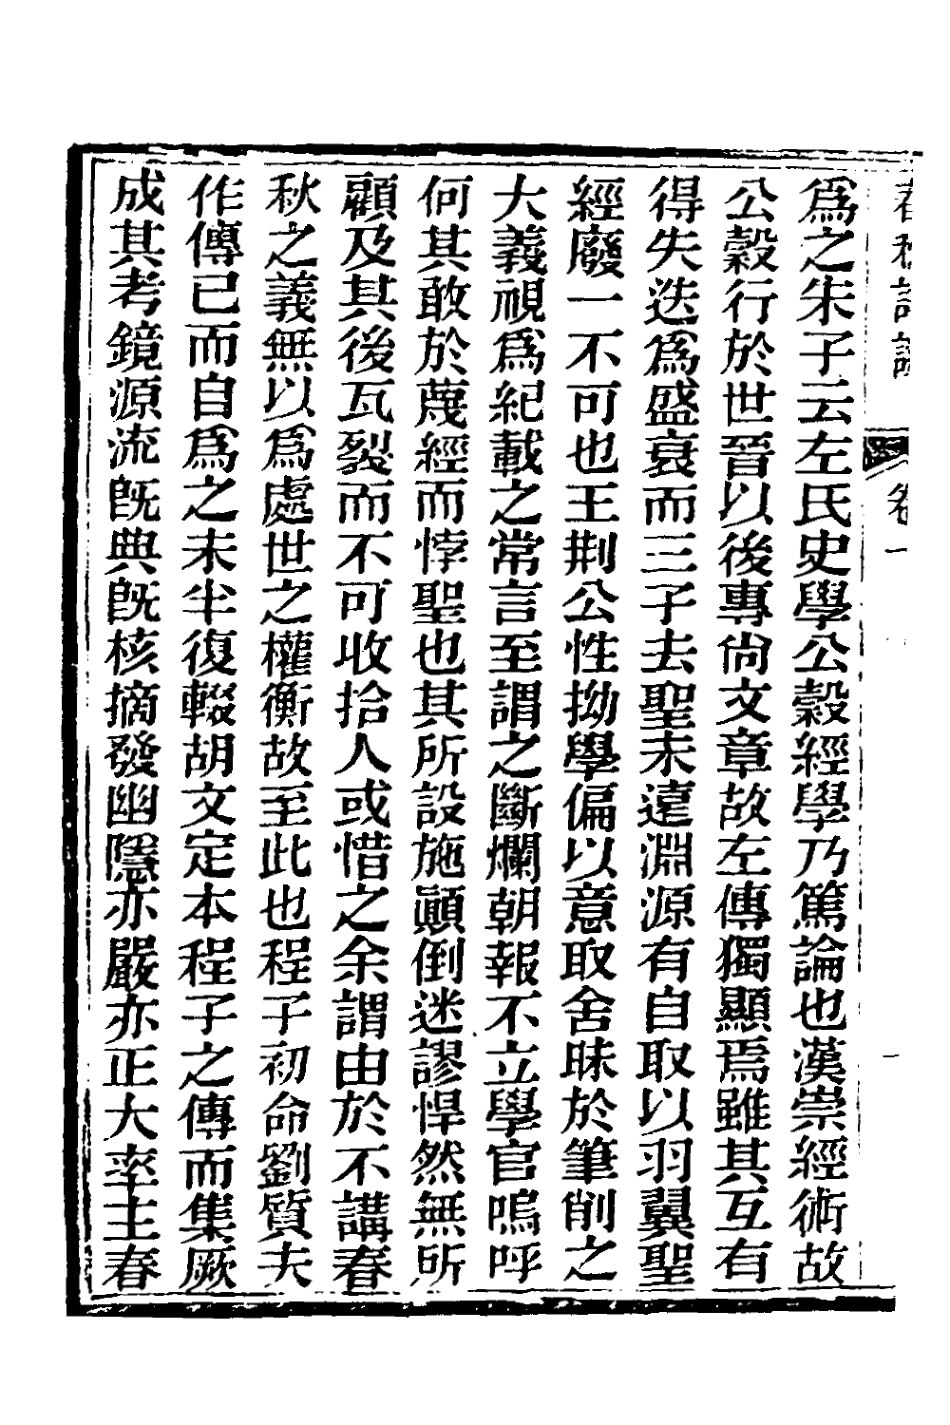 爲之朱子云左氏史學公穀經學乃篤論也漢崇經術故
公穀行於世晉以後專尙文章故左傳獨顯焉雖其互有
得失迭爲盛衰而三子去聖未遠淵源有自取以羽翼聖
經廢一不可也王荆公性拗學偏以意取舍昧於筆削之
大義視爲紀載之常言至謂之斷爛朝報不立學官嗚呼
何其敢於蔑經而悖聖也其所設施顚倒迷謬悍然無所
顧及其後瓦裂而不可收拾人或惜之余謂由於不講春
秋之義無以爲處世之權衡故至此也程子初命劉質夫
作傳已而自爲之未半復輟胡文定本程子之傳而集厥
成其考鏡源流旣典旣核摘發幽隱亦嚴亦正大率主春